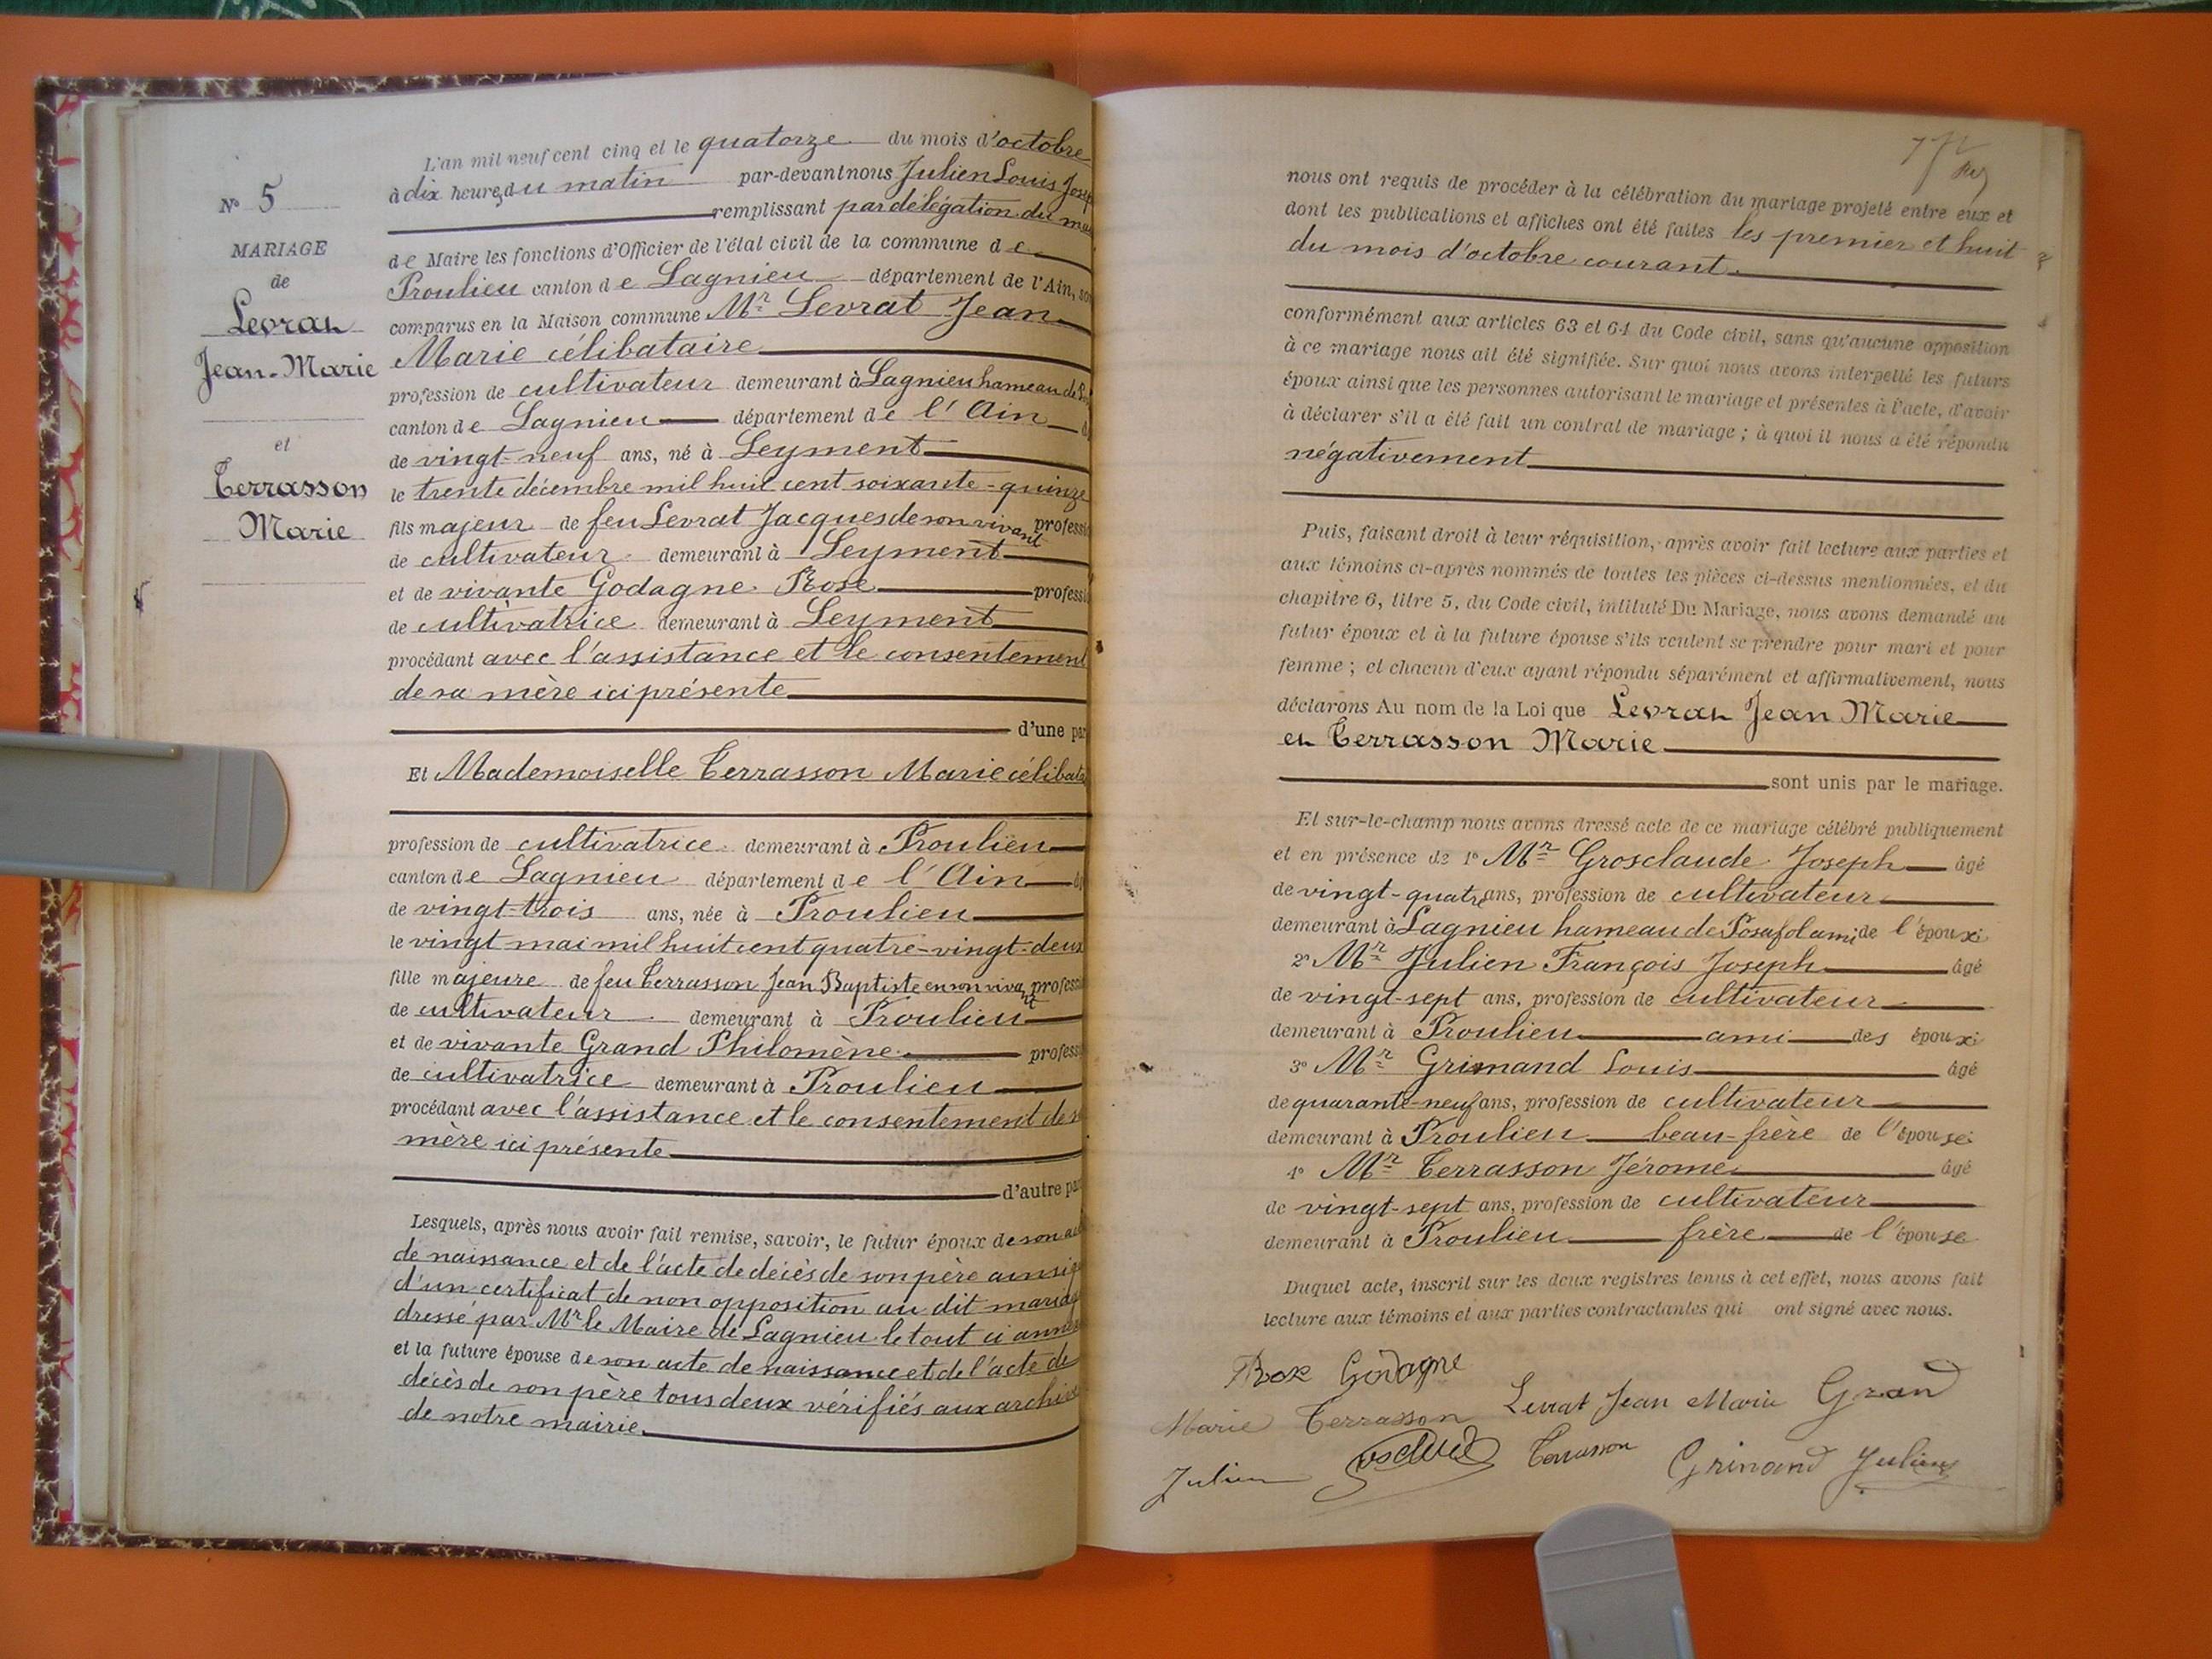 N° 5
MARIAGE
de
Levrat
Jean-Marie
et
Terrasson
Marie
L'an mil neuf cent cinq et le quatorze du mois d'octobre
à dix heures du matin par-devant nous Julien Louis
remplissant par délégation du
de Maire les fonctions d'Officier de l'état civil de la commune de
Proulieu canton de Lagnieu département de l'Ain,
comparus en la Maison commune Mr Levrat Jean
Marie célibataire
profession de cultivateur demeurant à Lagnieu hameau de
canton de Lagnieu département de l'Ain
de vingt-neuf ans, né à Leyment
le trente décembre mil huit cent soixante-quinze
fils majeur de feu Levrat Jacques de son vivant
de cultivateur demeurant à Leyment
et de vivante Godagne Rose
de cultivatrice demeurant à Leyment
procédant avec l'assistance et le consentement
de sa mère ici présente
d'une
Et Mademoiselle Terrasson Marie
profession de cultivatrice demeurant à Proulieu
canton de Lagnieu département de l'Ain
de vingt-trois ans, née à Proulieu
le vingt mai mil huit cent quatre-vingt-deux
fille majeure de feu Terrasson Jean Baptiste en son vivant
de cultivateur demeurant à Proulieu
et de vivante Grand Philomène
de cultivatrice demeurant à Proulieu
procédant avec l'assistance et le consentement de
mère ici présente
d'autre
Lesquels, après nous avoir fait remise, savoir, le futur époux de son
de naissance et de l'acte de décès de son père
d'un certificat de non opposition au dit
dressé par Mr le Maire de Lagnieu le tout ci
et la future épouse de son acte de naissance et de l'acte de
décès de son père tous deux vérifiés aux
de notre mairie.
nous ont requis de procéder à la célébration du mariage projeté entre eux et
dont les publications et affiches ont été faites les premier et huit
du mois d'octobre courant
conformément aux articles 63 et 64 du Code civil, sans qu'aucune opposition
à ce mariage nous ait été signifiée. Sur quoi nous avons interpellé les futurs
époux ainsi que les personnes autorisant le mariage et présentes à l'acte, d'avoir
à déclarer s'il a été fait un contrat de mariage ; à quoi il nous a été répondu
négativement
Puis, faisant droit à leur réquisition, après avoir fait lecture aux parties et
aux témoins ci-après nommés de toutes les pièces ci-dessus mentionnées, et du
chapitre 6, titre 5, du Code civil, intitulé Du Mariage, nous avons demandé au
futur époux et à la future épouse s'ils veulent se prendre pour mari et pour
femme ; et chacun d'eux ayant répondu séparément et affirmativement, nous
déclarons Au nom de la Loi que Levrat Jean Marie
et Terrasson Marie
sont unis par le mariage.
Et sur-le-champ nous avons dressé acte de ce mariage célébré publiquement
et en présence de 1° Mr Grosclaude Joseph âgé
de vingt-quatre ans, profession de cultivateur
demeurant à Lagnieu hameau de Posafol ami de l'époux
2° Mr Julien François Joseph âgé
de vingt-sept ans, profession de cultivateur
demeurant à Proulieu ami des époux
3° Mr Grimand Louis âgé
de quarante-neuf ans, profession de cultivateur
demeurant à Proulieu beau-frère de l'épouse
4° Mr Terrasson Jérome âgé
de vingt-sept ans, profession de cultivateur
demeurant à Proulieu frère de l'épouse
Duquel acte, inscrit sur les deux registres tenus à cet effet, nous avons fait
lecture aux témoins et aux parties contractantes qui ont signé avec nous.
Rose Godagne
Marie Terrasson Levrat Jean Marie Grand
Julien Terrasson Grimand Julien